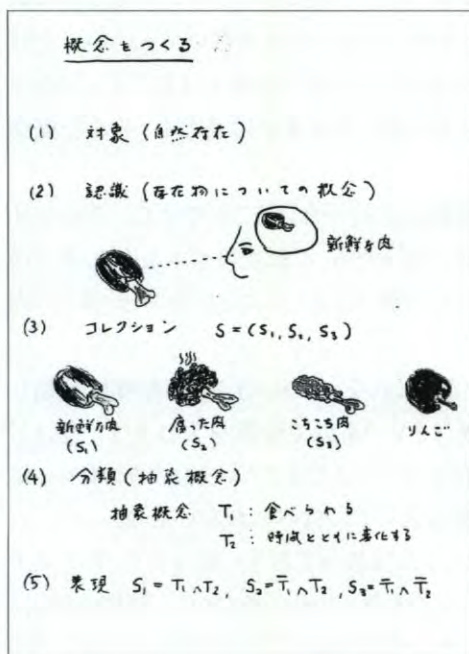 概念をつくる
(1) 対象(自然存在)
(2) 認識(存在物についての概念)
新鮮な肉
(3) コレクション S=(S₁, S₂, S₃)
新鮮な肉 腐った肉 こちこち肉 りんご
(S₁) (S₂) (S₃)
(4) 分類(抽象概念)
抽象概念 T₁: 食べられる
T₂: 時間とともに変化する
(5) 表現 S₁=T₁∧T₂, S₂=T̄₁∧T₂, S₃=T̄₁∧T̄₂